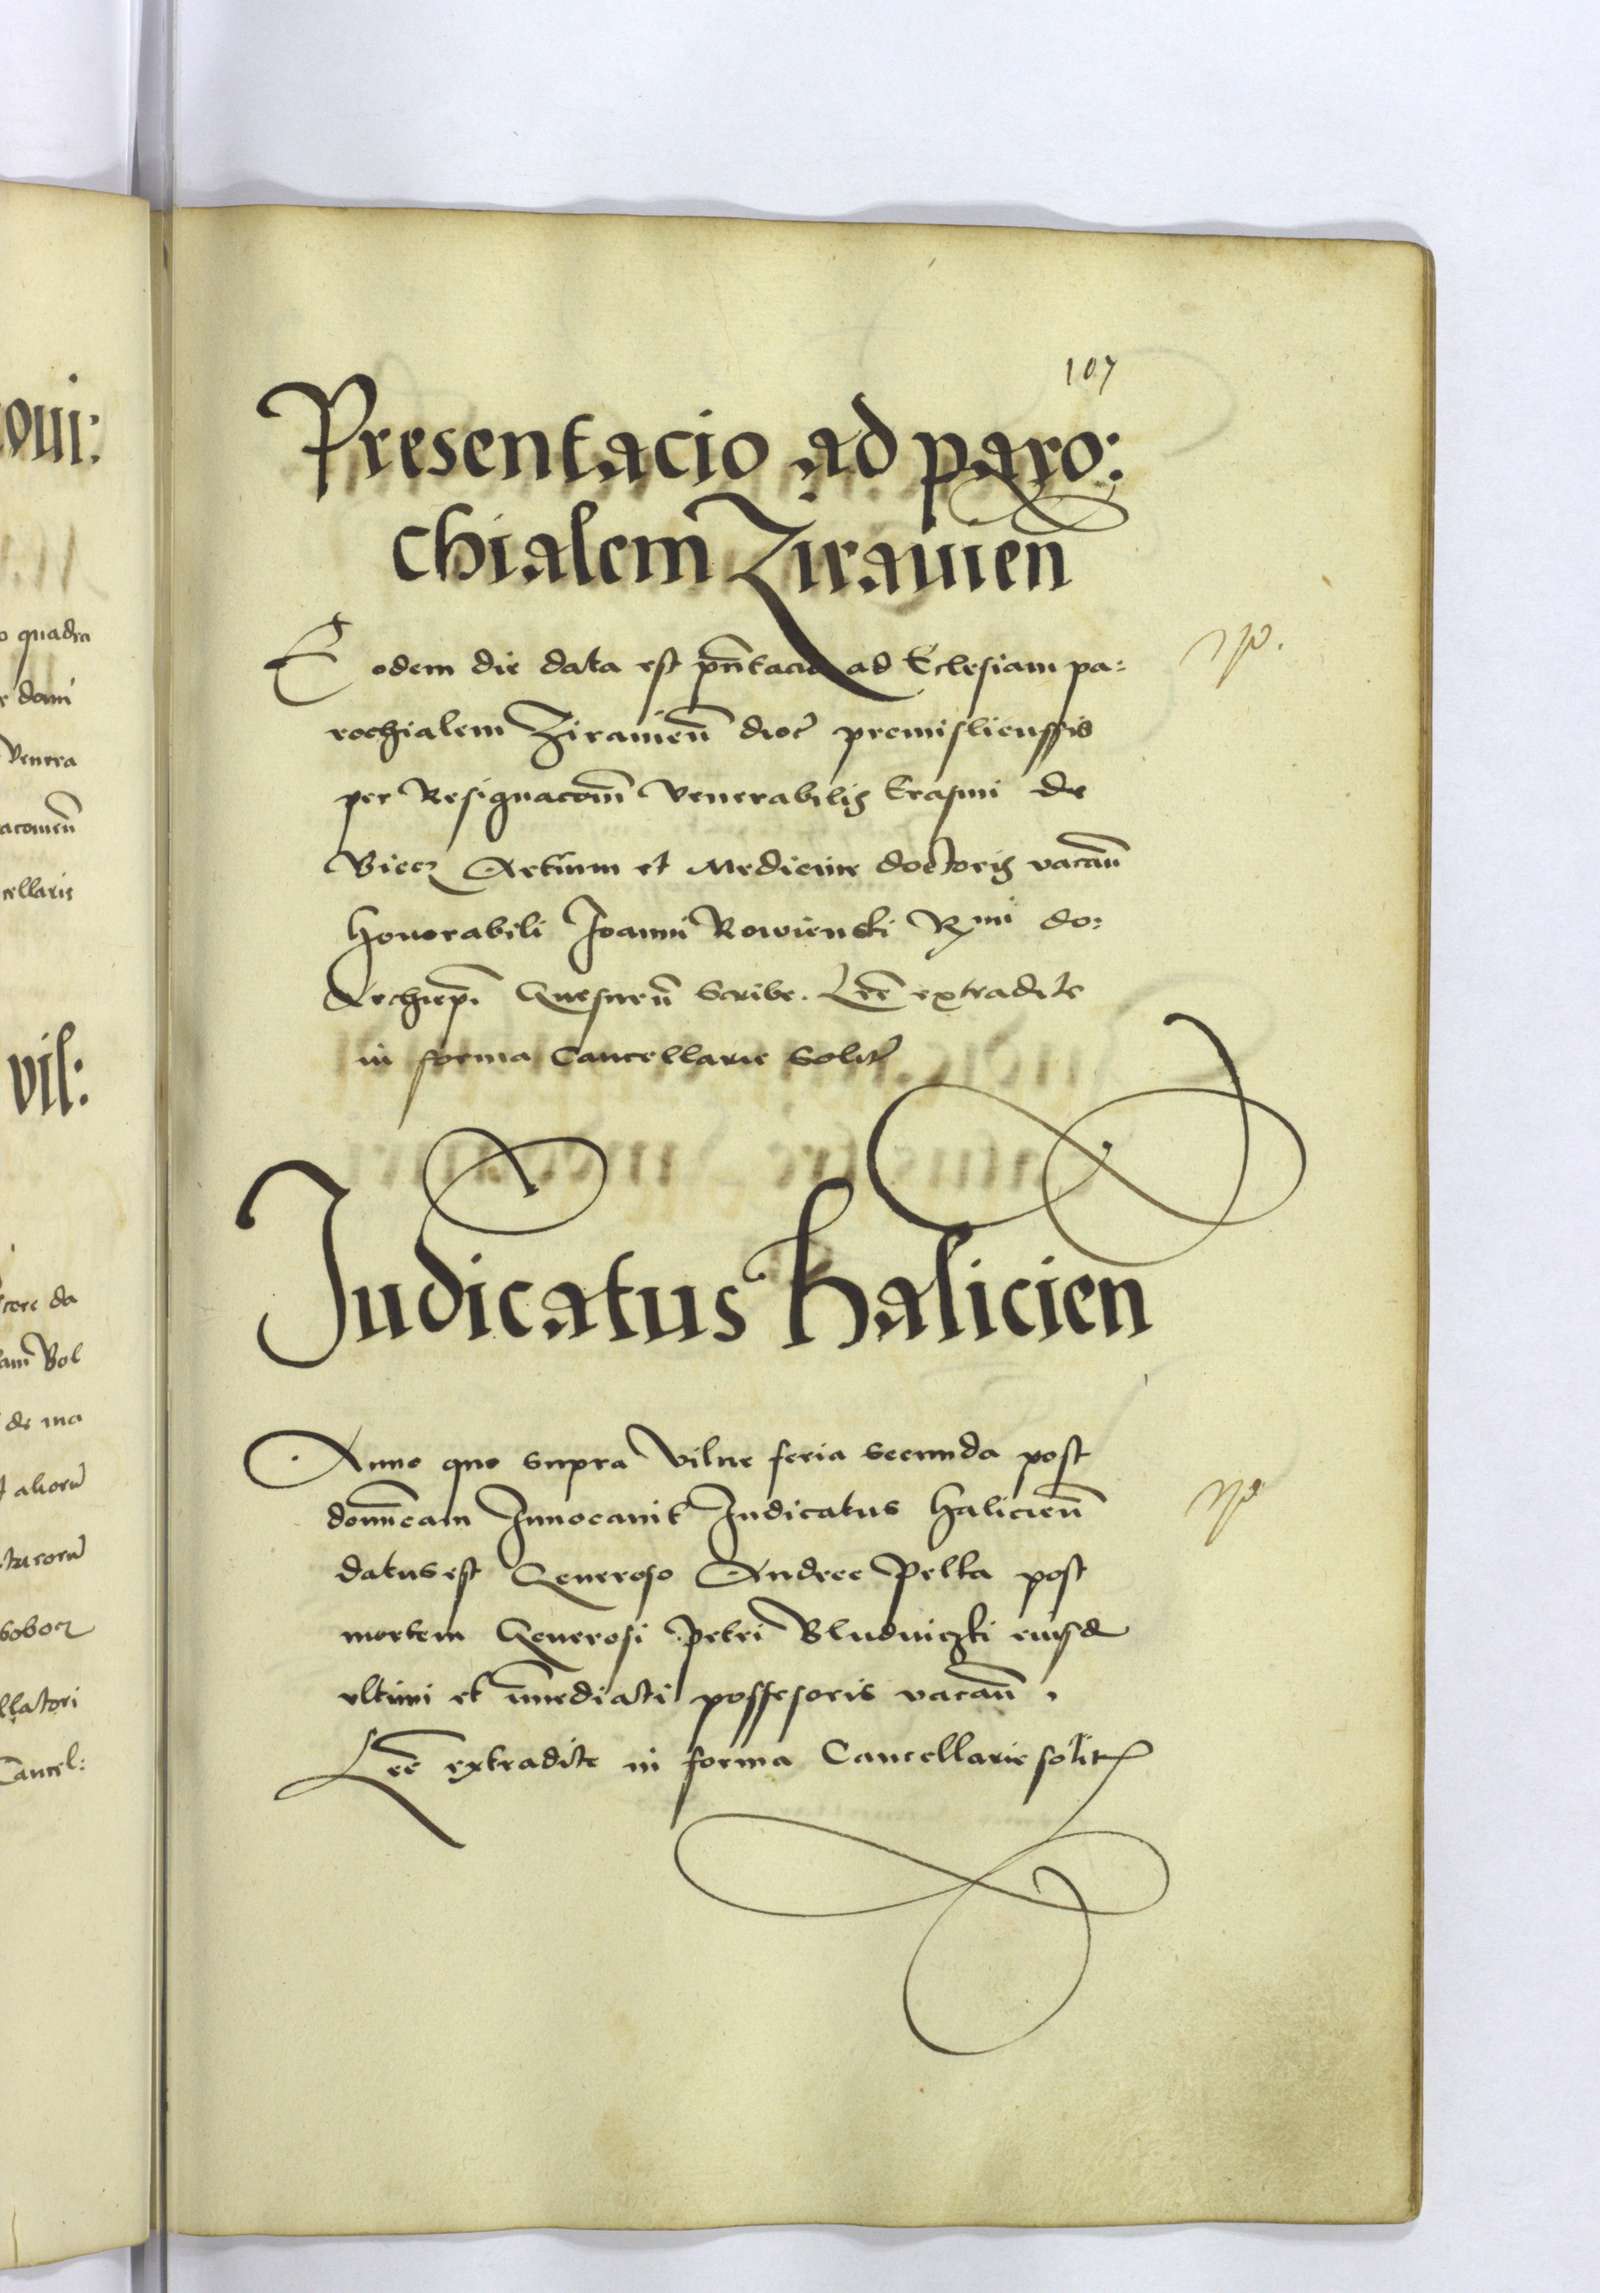 oui:
o quadra
e domi
Venera
acomeñ
cellaris
vil:
lam Vol
de ma
t alioru̅
turoru̅
llatori
Cancel:
107
Presentacio ad paro:
chialem Ziravieñ
Eodem die data est pñtacio ad Eclesiam pa:
rochialem Ziravieñ dioc̃ premisliensis
per Resignacom̃ Venerabilis Erasmi de
Biecz Artium et Medicine doctoris vacañ
honorabili Joanni Rowienski Rmi do:
Archiep̃i Gnesneñ Scribe. Lr̃e extradite
in forma Cancellarie Solit̃
Judicatus halicien
Anno quo supra Vilne feria secunda post
domĩcam Innocavit Judicatus halicieñ
datus est Generoso Andree Pelka post
mortem Generosi Petri Bludniczki eiusd
ultimi et im̃ediati possesoris vacañ.
Lr̃e extradite in forma Cancellarie solit̃